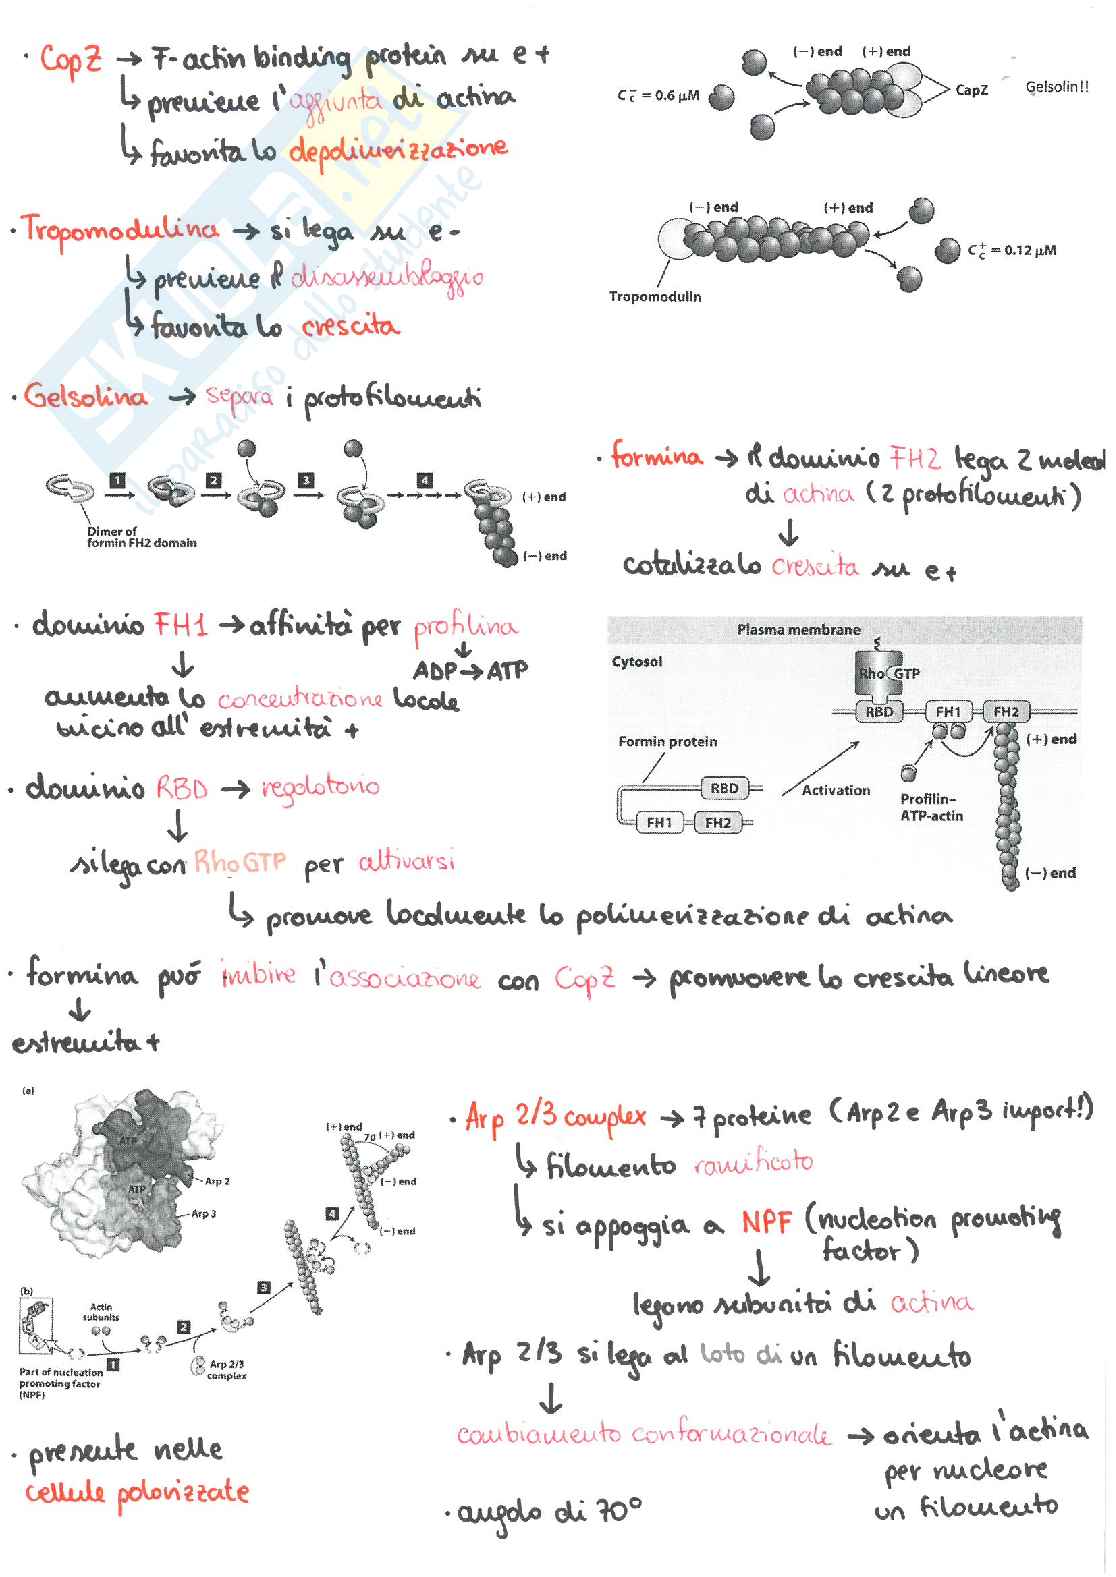 · CapZ → F-actin binding protein su e+
↳ previene l'aggiunta di actina
↳ favorita la depolimerizzazione
(−) end (+) end
C⁻c = 0.6 μM
CapZ
Gelsolin!!
· Tropomodulina → si lega su e-
↳ previene il disassemblaggio
↳ favorita la crescita
(−) end (+) end
C⁺c = 0.12 μM
Tropomodulin
SKUOLA.net
il paradiso dello studente
· Gelsolina → separa i protofilamenti
1 2 3 4
(+) end
(−) end
Dimer of
formin FH2 domain
· formina → il dominio FH2 lega 2 molecol
di actina (2 protofilamenti)
↓
catalizza la crescita su e+
· dominio FH1 → affinità per profilina
↓
ADP → ATP
↓
aumenta la concentrazione locale
vicino all'estremità +
· dominio RBD → regolatorio
↓
si lega con Rho GTP per attivarsi
↳ promove localmente la polimerizzazione di actina
Plasma membrane
Cytosol
Rho GTP
RBD FH1 FH2
(+) end
Formin protein
RBD
FH1 FH2
Activation
Profilin–
ATP-actin
(−) end
· formina può inibire l'associazione con CapZ → promuovere la crescita lineare
↓
estremità +
(a)
ATP
ATP
Arp 2
Arp 3
(b)
A
Actin
subunits
1 2 3 4
Part of nucleation
promoting factor
(NPF)
Arp 2/3
complex
(+) end
70 (+) end
(−) end
(−) end
· Arp 2/3 complex → 7 proteine (Arp2 e Arp3 import!)
↳ filamento ramificato
↳ si appoggia a NPF (nucleation promoting
factor)
↓
legano subunità di actina
· Arp 2/3 si lega al lato di un filamento
↓
cambiamento conformazionale → orienta l'actina
per nucleare
un filamento
· presente nelle
cellule polarizzate
· angolo di 70°